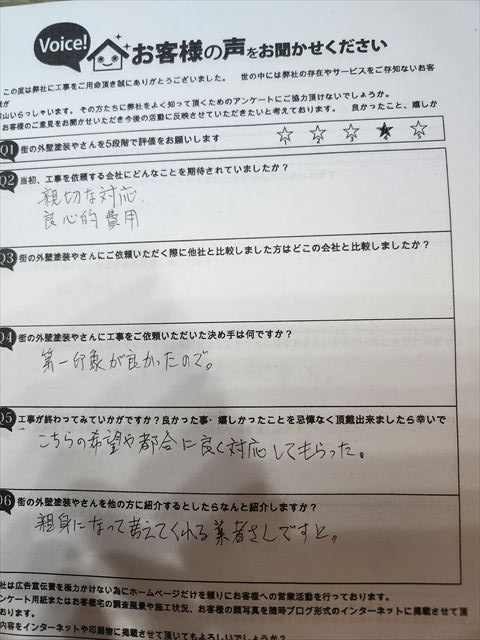 Voice! お客様の声をお聞かせください
この度は弊社に工事をご用命頂き誠にありがとうございました。 世の中には弊社の存在やサービスをご存知ないお客
様が
沢山いらっしゃいます。その方たちに弊社をよく知って頂くためのアンケートにご協力頂けないでしょうか。
お客様のご意見をお聞かせいただき今後の活動に反映させていただきたいと考えております。 良かったこと、嬉しか
Q1 街の外壁塗装やさんを5段階で評価をお願いします ☆1 ☆2 ☆3 ★4 ☆5
Q2 当初、工事を依頼する会社にどんなことを期待されていましたか？
親切な対応
良心的費用
Q3 街の外壁塗装やさんにご依頼いただく際に他社と比較しました方はどこの会社と比較しましたか？
Q4 街の外壁塗装やさんに工事をご依頼いただいた決め手は何ですか？
第一印象が良かったので。
Q5 工事が終わってみていかがですか？良かった事・嬉しかったことを忌憚なく頂戴出来ましたら幸いで
こちらの希望や都合に良く対応してもらった。
Q6 街の外壁塗装やさんを他の方に紹介するとしたらなんと紹介しますか？
親身になって考えてくれる業者さんですと。
社は広告宣伝費を極力かけない為にホームページだけを頼りにお客様への営業活動を行っております。
ンケート用紙またはお客様宅の調査風景や施工状況、お客様の顔写真を随時ブログ形式のインターネットに掲載させて頂
おります。
内容をインターネットや印刷物に掲載させて頂いてもよろしいでしょうか？